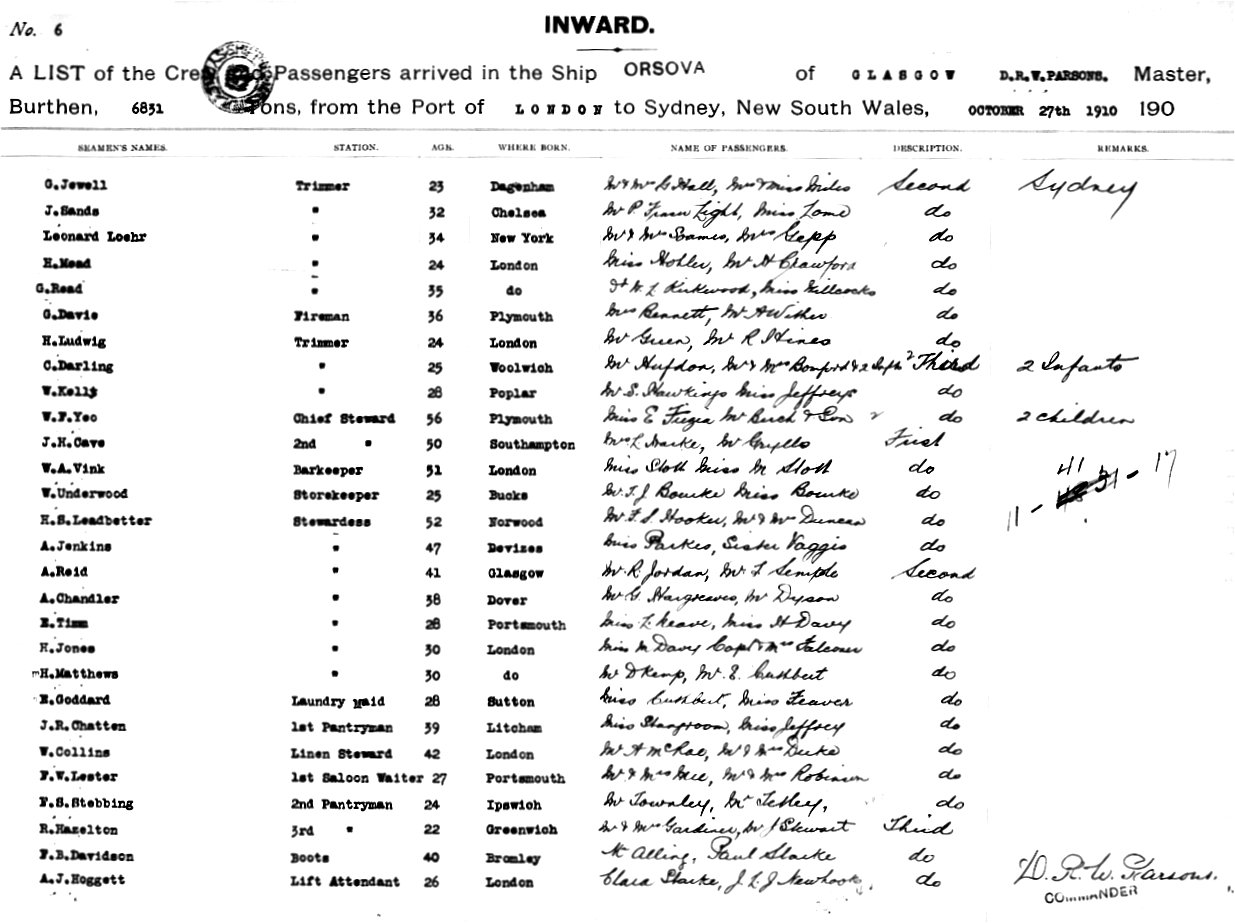 No. 6
INWARD.
A LIST of the Crew and Passengers arrived in the Ship ORSOVA of GLASGOW D.R.W.PARSONS. Master,
Burthen, 6831 Tons, from the Port of LONDON to Sydney, New South Wales, OCTOBER 27th 1910 190
SEAMEN'S NAMES. STATION. AGE. WHERE BORN. NAME OF PASSENGERS. DESCRIPTION. REMARKS.
G.Jewell Trimmer 23 Dagenham Mr & Mrs G Hall, Mrs & Miss Miles Second Sydney
J.Sands " 32 Chelsea Mr P. Fraser Light, Miss do
Leonard Loehr " 34 New York Mr & Mrs Eames, Mrs Gepp do
H.Mead " 24 London Miss Hohler, Mr H Crawford do
G.Read " 35 do Kirkwood, Miss Willcocks do
G.Davie Fireman 36 Plymouth Mrs Bennett, Mr A do
H.Ludwig Trimmer 24 London Mr Green, Mr R Hines do
C.Darling " 25 Woolwich Mr Mr & Mrs Bomford & 2 Infts 2 Third 2 Infants
W.Kelly " 28 Poplar Mr S. Hawkings Miss Jeffreys do
W.F.Yeo Chief Steward 56 Plymouth Miss E Mr Birch & Son 2 do 2 children
J.H.Cave 2nd " 50 Southampton Mrs L Mr Gryllo First
W.A.Vink Barkeeper 51 London Miss Stott Miss M Stott do 41
W.Underwood Storekeeper 25 Bucks Mr T.J Bourke Miss Bourke do 11 - 31 - 17
H.S.Leadbetter Stewardess 52 Norwood Mr F. S. Hooker, Mr & Mrs Duncan do
A.Jenkins " 47 Devizes Miss Parkes, Sister Vaggis do
A.Reid " 41 Glasgow Mr R. Jordan, Mr F Semple Second
A.Chandler " 38 Dover Mr G. Hargreaves, Mr Dyson do
E.Timm " 28 Portsmouth Miss L. Neave, Miss H Davy do
H.Jones " 30 London Miss M Davy Capt & Mrs Falconer do
H.Matthews " 30 do Mr D Kemp, Mr. E. Cuthbert do
E.Goddard Laundry maid 28 Sutton Miss Cuthbert, Miss Feaver do
J.R.Chatten 1st Pantryman 39 Litcham Miss Stangroom, Miss Jeffrey do
W.Collins Linen Steward 42 London Mr A McRae, Mr & Mrs Duke do
F.W.Lester 1st Saloon Waiter 27 Portsmouth Mr & Mrs Mee, Mr & Mrs Robinson do
F.S.Stebbing 2nd Pantryman 24 Ipswich Mr Townley, Mr Tetley, do
R.Hazelton 3rd " 22 Greenwich Mr & Mrs Gardiner, Mr J Stewart Third
F.B.Davidson Boots 40 Bromley Mr Alling, Paul Starke do
A.J.Hoggett Lift Attendant 26 London Clara Starke, J. L. J Newhook, do
D. R. W. Parsons.
COMMANDER